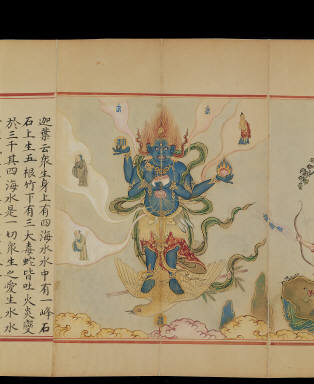 迦葉云衆生身上有四海水水中有一峰石
石上生五根竹下有三大毒蛇皆吐火炎變
於三千其四海水是一切衆生之愛生水水